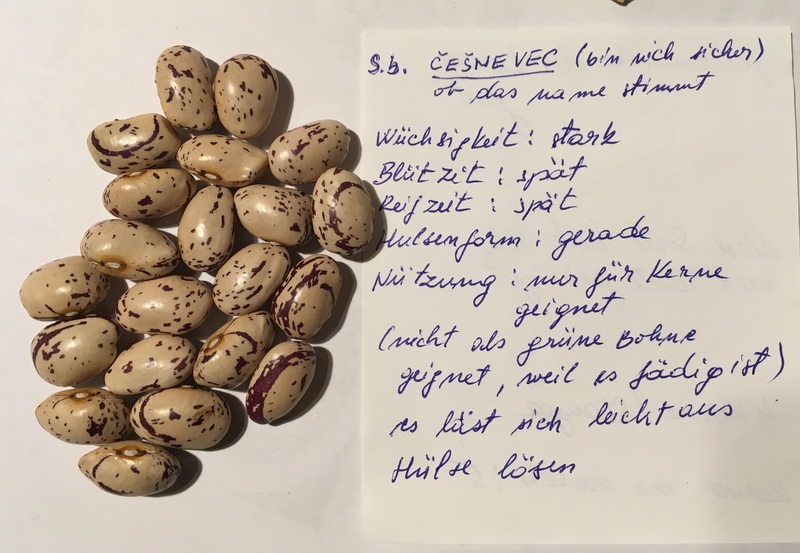 S.b. ČEŠNEVEC (bin nich sicher)
ob das name stimmt
Wüchsigkeit : stark
Blüt zeit : spät
Reifzeit : spät
Hulsenform : gerade
Nützung : nur für Kerne
geignet
(nicht als grüne Bohne
geignet, weil es fädig ist)
es läst sich leicht aus
Hülse lösen